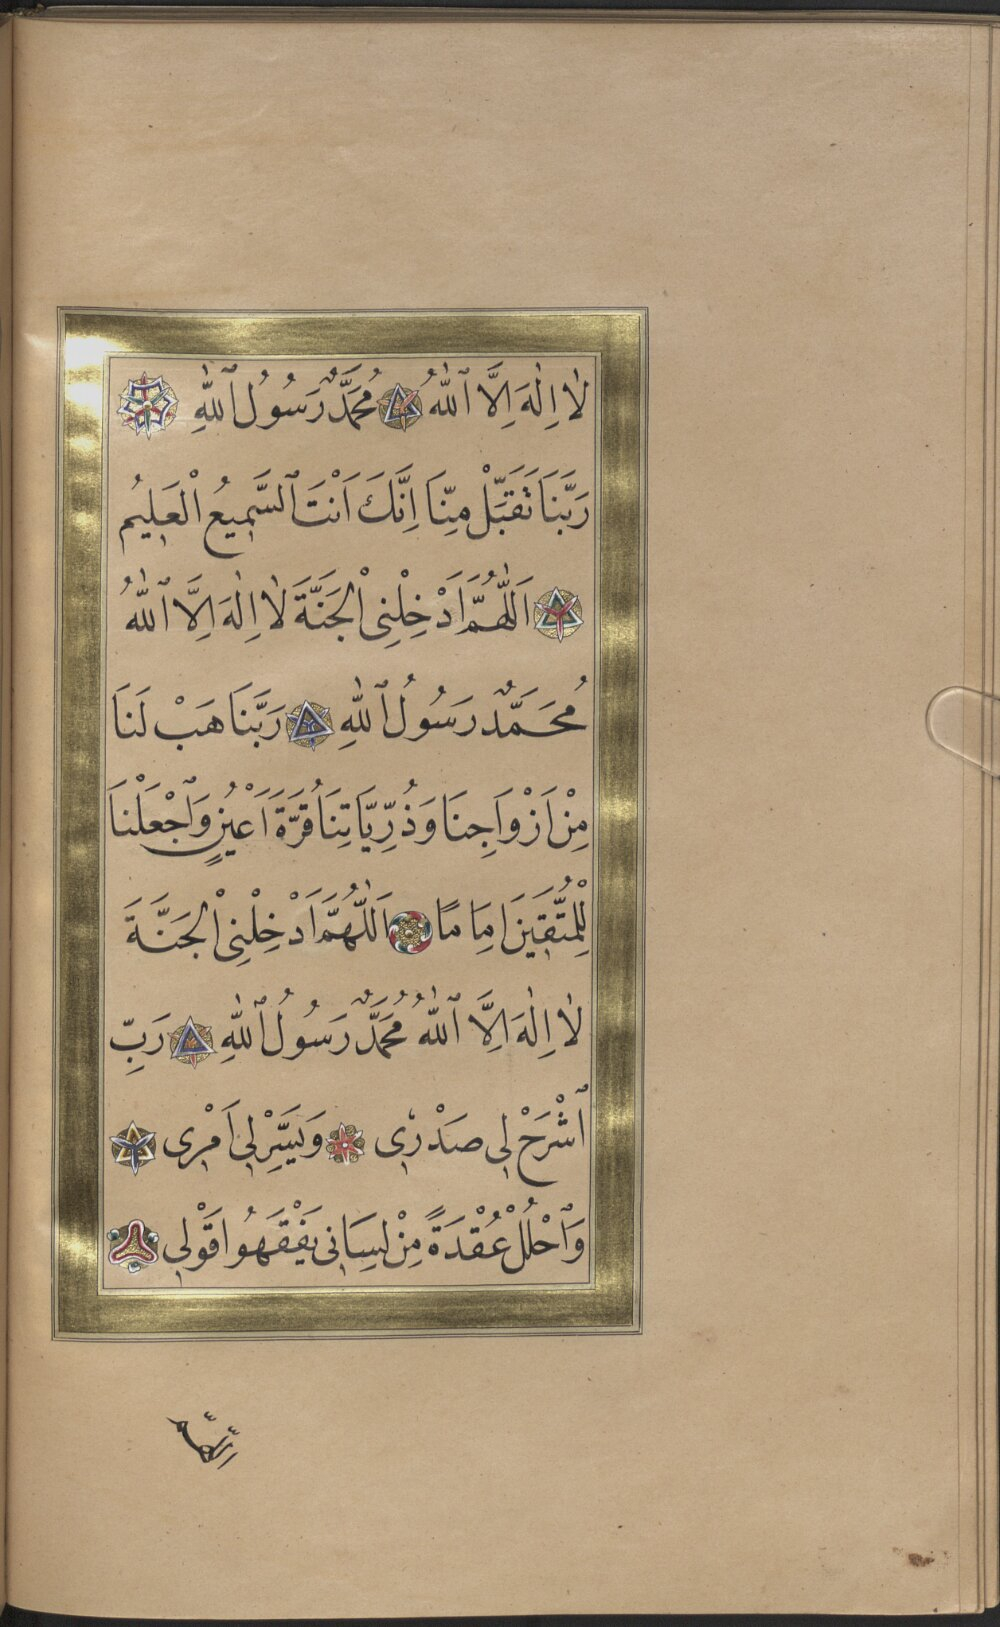 لَا اِلٰهَ اِلَّا ٱللّٰهُ مُحَمَّدٌ رَسُولُ ٱللّٰهِ
رَبَّنَا تَقَبَّلْ مِنَّا اِنَّكَ اَنْتَ ٱلسَّمِيعُ الْعَلِيمُ
اَللّٰهُمَّ اَدْخِلْنِى الْجَنَّةَ لَا اِلٰهَ اِلَّا ٱللّٰهُ
مُحَمَّدٌ رَسُولُ ٱللّٰهِ رَبَّنَا هَبْ لَنَا
مِنْ اَزْوَاجِنَا وَذُرِّيَّاتِنَا قُرَّةَ اَعْيُنٍ وَٱجْعَلْنَا
لِلْمُتَّقِينَ اِمَامًا اَللّٰهُمَّ اَدْخِلْنِى الْجَنَّةَ
لَا اِلٰهَ اِلَّا ٱللّٰهُ مُحَمَّدٌ رَسُولُ ٱللّٰهِ رَبِّ
ٱشْرَحْ لِى صَدْرِى وَيَسِّرْ لِى اَمْرِى
وَٱحْلُلْ عُقْدَةً مِنْ لِسَانِى يَفْقَهُوا قَوْلِى